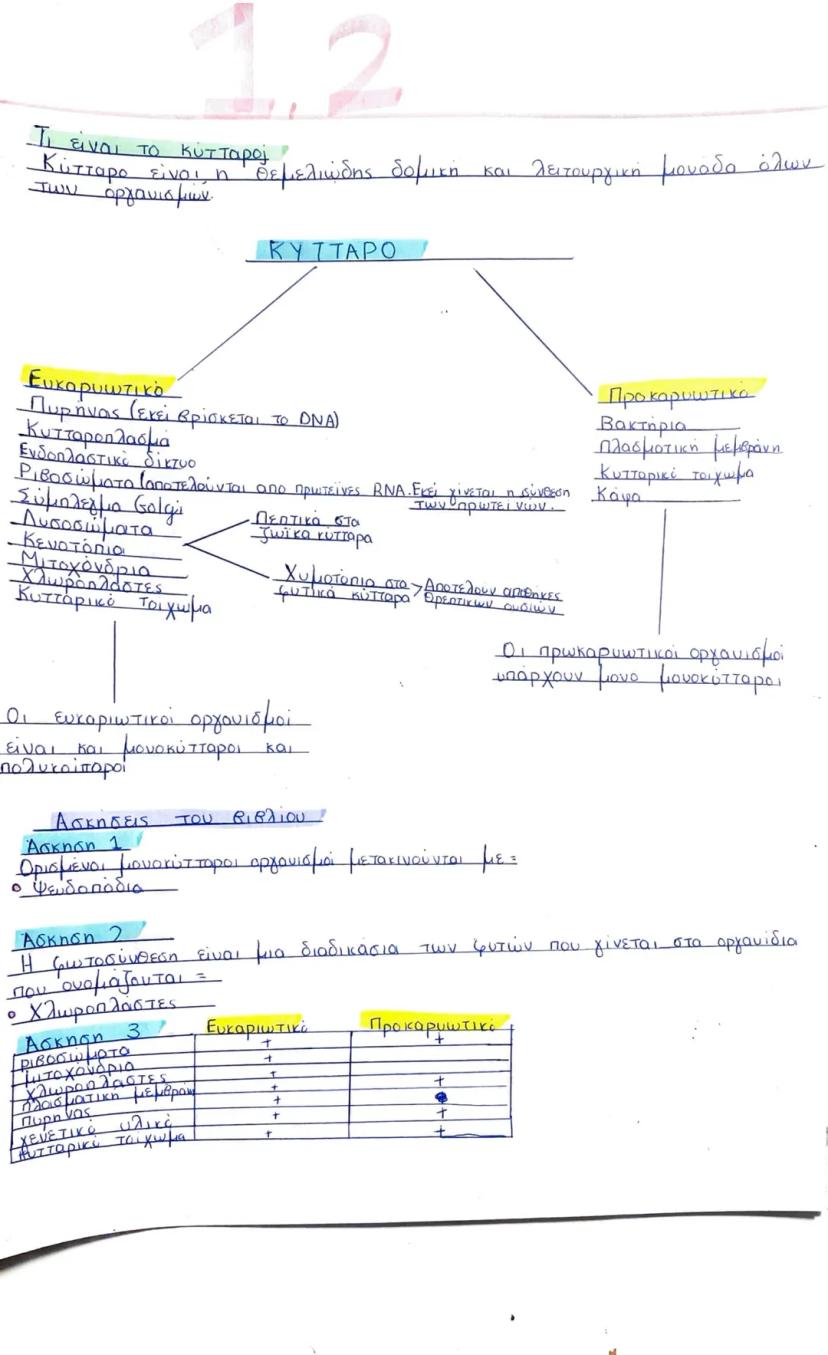 1.2
Τι είναι το κύτταρο;
Κύτταρο είναι η θεμελιώδης δομική και λειτουργική μονάδα όλων
των οργανισμών.
ΚΥΤΤΑΡΟ
Ευκαρυωτικό
Πυρήνας (εκεί βρίσκεται το DNA)
Κυτταροπλασμα
Ενδοπλαστικό δίκτυο
Ριβοσώματα (αποτελούνται απο πρωτεΐνες RNA. Εκεί γίνεται η σύνθεση
των πρωτεϊνων.
Σύμπλεγμα Golgi
Λυσοσώματα
Κενοτόπια
Μιτοχόνδρια
Χλωροπλάστες
Κυτταρικό τοίχωμα
Πεπτικά στα
ζωϊκα κύτταρα
Χυμοτόπια στα
φυτικά κύτταρα
Αποτελουν αποθηκες
θρεπτικων ουσιών
Οι ευκαριωτικοί οργανισμοί
είναι και μονοκύτταροι και
πολυκύτταροι
Προκαρυωτικό
Βακτήρια
Πλασματική μεμβράνη
Κυτταρικό τοίχωμα
Κάψα
Οι πρωκαρυωτικοί οργανισμοί
υπάρχουν μονο μονοκύτταροι
Ασκήσεις του βιβλίου
Άσκηση 1
Ορισμένοι μονοκύτταροι οργανισμοί μετακινούνται με =
• Ψευδοπόδια
Άσκηση 2
Η φωτοσύνθεση είναι μια διαδικάσια των φυτών που γίνεται στα οργανίδια
που ονομάζονται =
• Χλωροπλάστες
Άσκηση 3 Ευκαριωτικό Προκαρυωτικό
ριβοσώματα + +
μιτοχόνδρια +
Χλωροπλάστες +
πλασματική μεμβράνη + +
πυρήνας +
γενετικό υλικό + +
κυτταρικό τοίχωμα + +